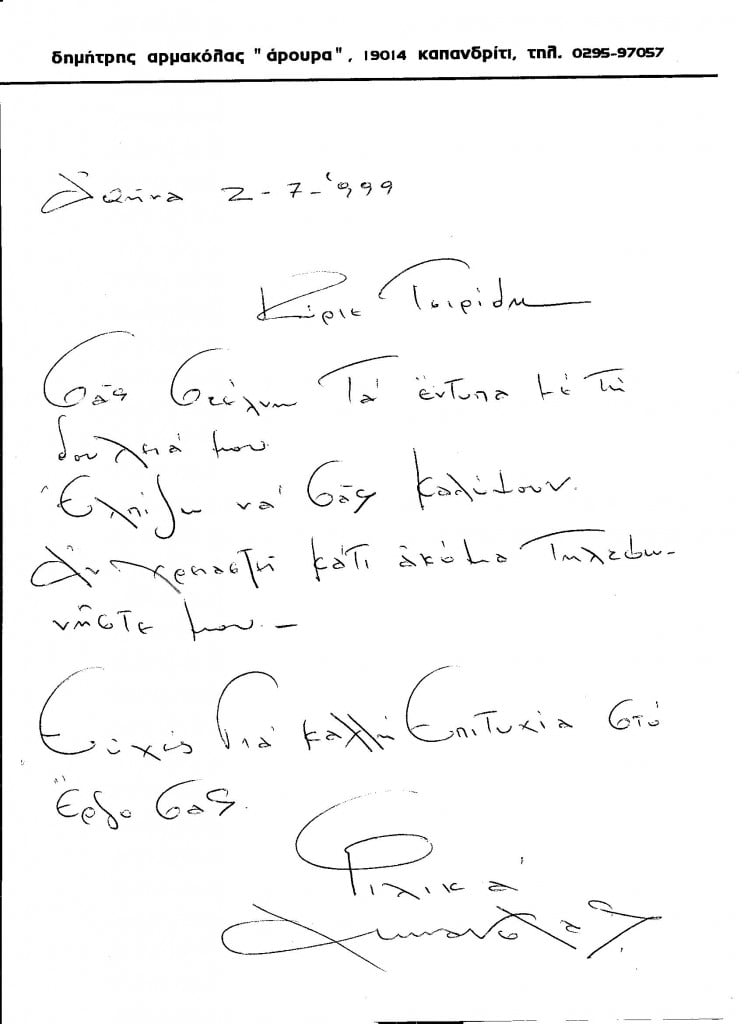 δημήτρης αρμακόλας "άρουρα", 19014 καπανδρίτι, τηλ. 0295-97057
Ἀθήνα 2-7-'999
Κύριε Τσιρίδη
Σᾶς στέλνω τά ἔντυπα μέ τή
δουλειά μου
Ἐλπίζω νά σᾶς καλύπτουν.
Ἄν χρειαστῆ κάτι ἀκόμα τηλεφω-
νῆστε μου.-
Εὐχές γιά καλή ἐπιτυχία στό
ἔργο σας.
Φιλικά